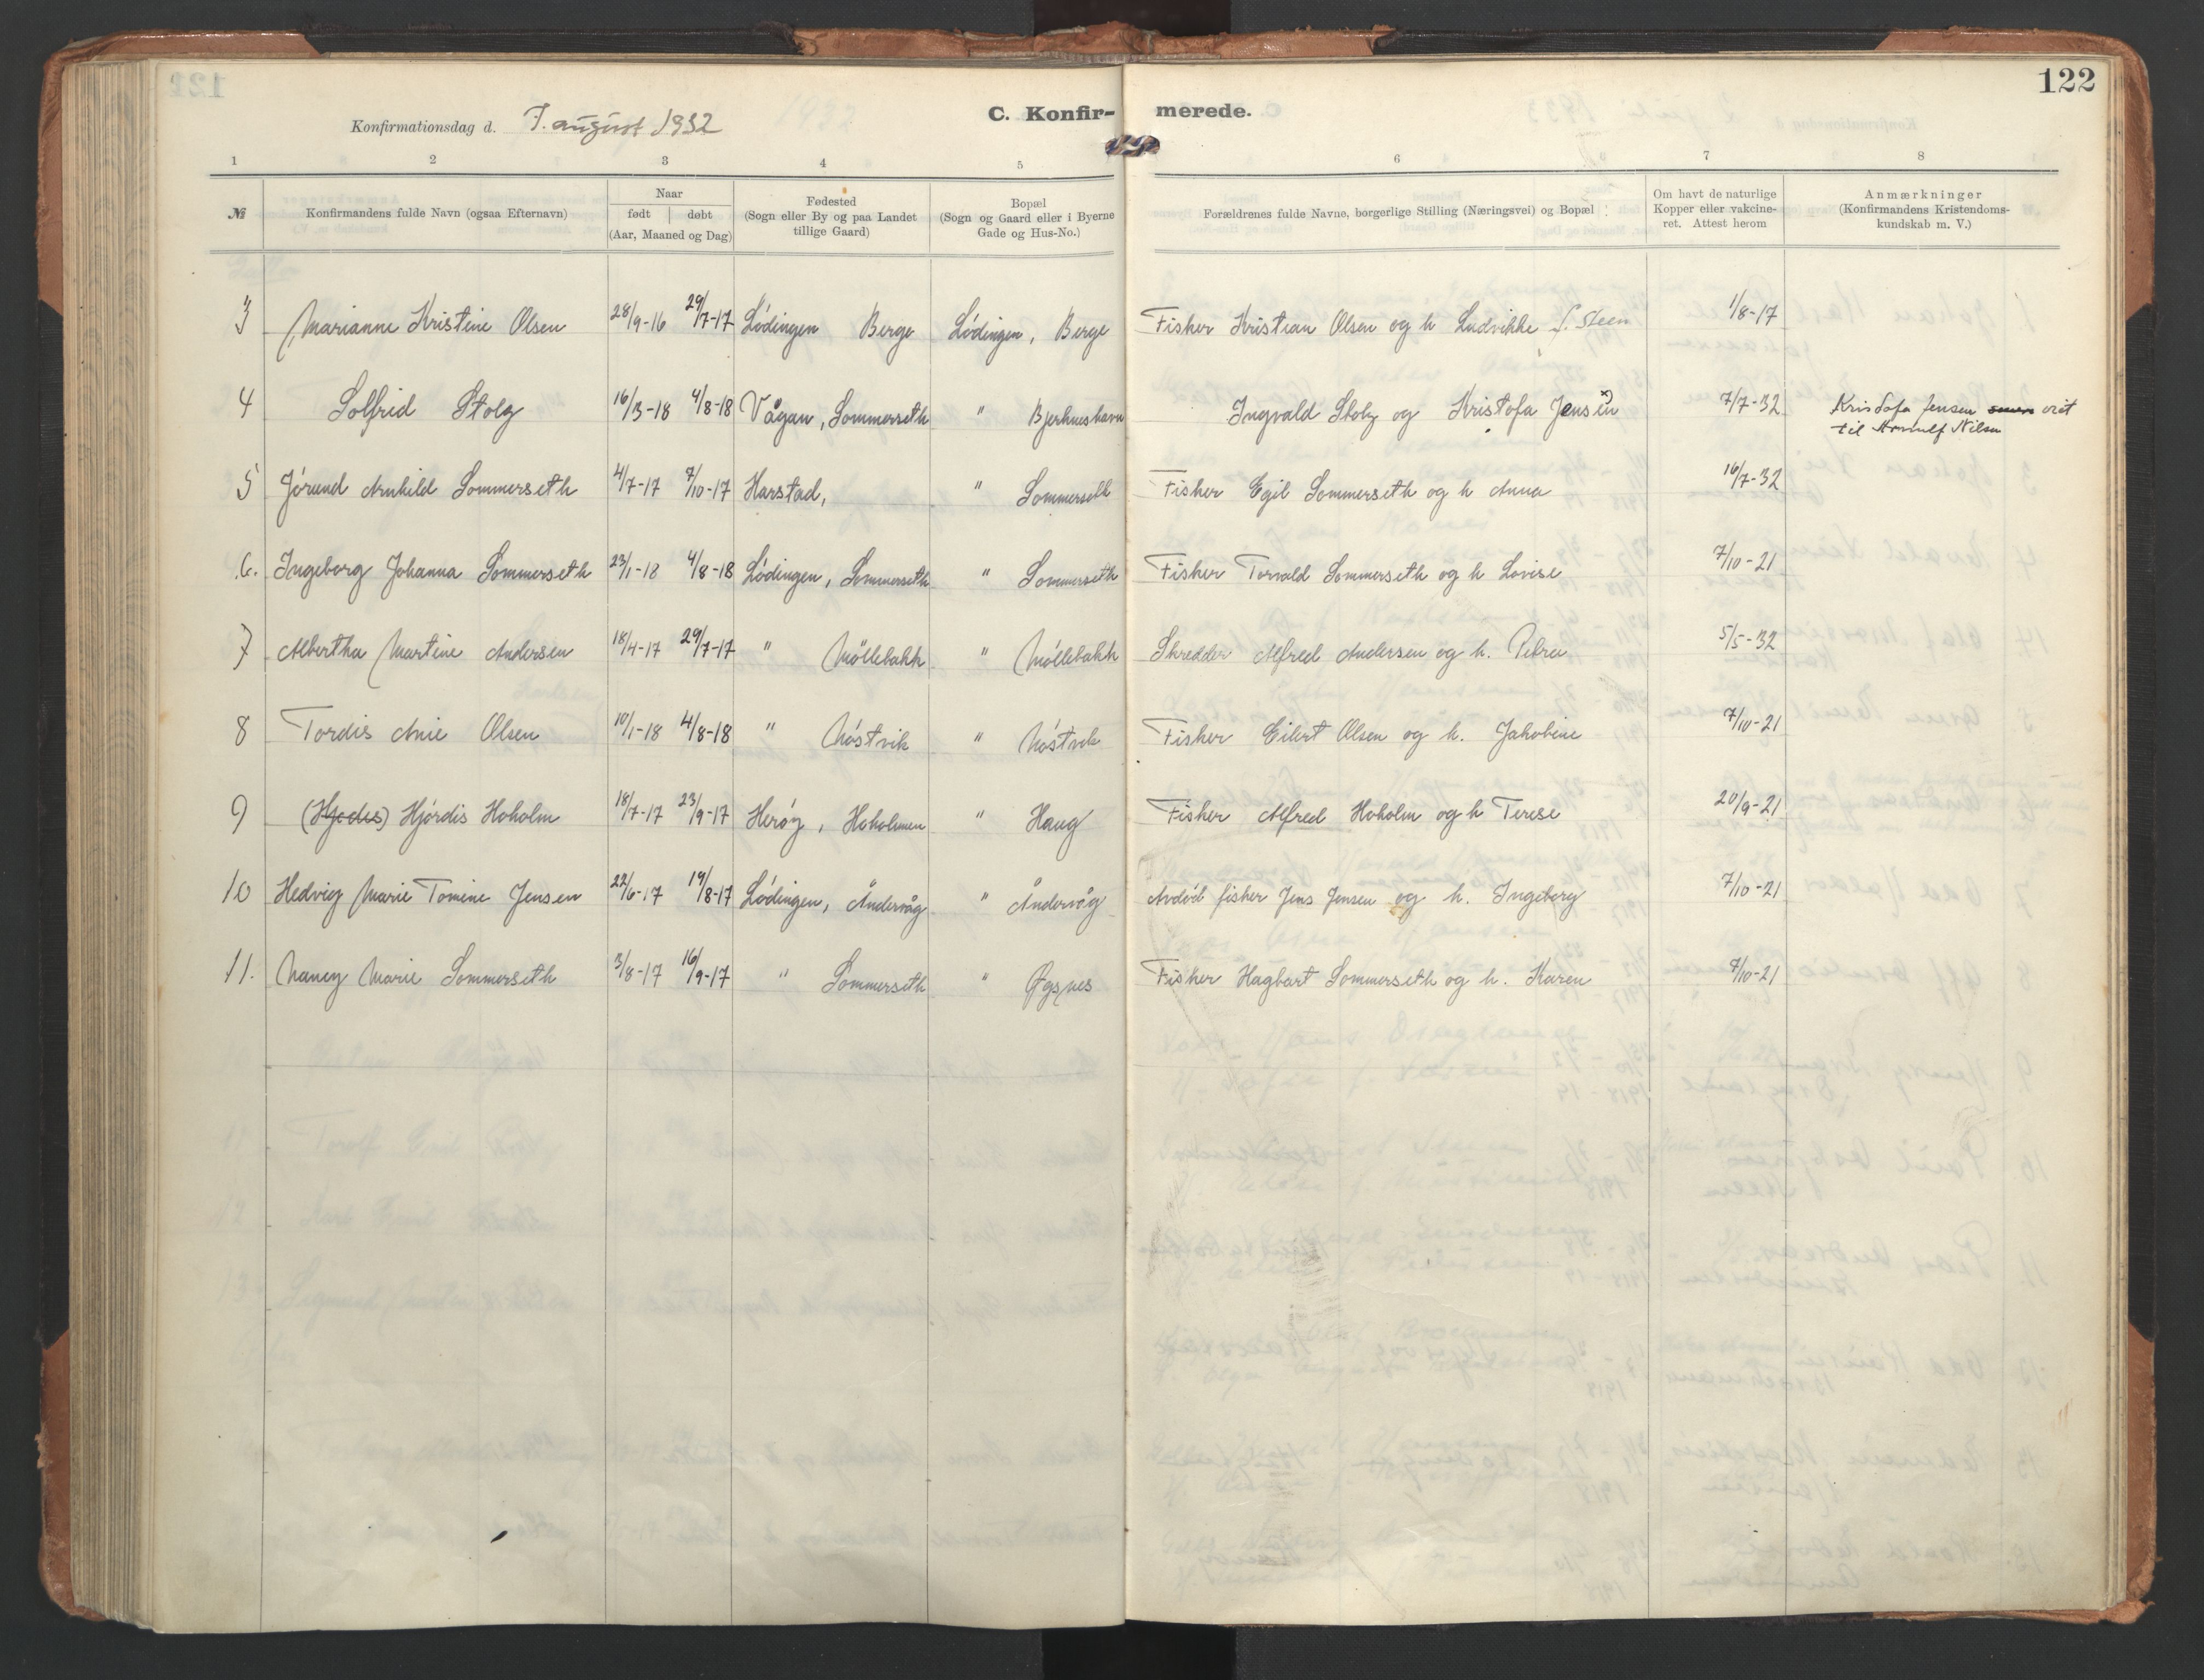 122
Konfirmationsdag d. 7. august 1932
C. Konfir- merede.
1 2 3 4 5 6 7 8
№ Konfirmandens fulde Navn (ogsaa Efternavn) Naar født døbt (Aar, Maaned og Dag) Fødested (Sogn eller By og paa Landet tillige Gaard) Bopæl (Sogn og Gaard eller i Byerne Gade og Hus-No.) Forældrenes fulde Navne, borgerlige Stilling (Næringsvei) og Bopæl Om havt de naturlige Kopper eller vakcineret. Attest herom Anmærkninger (Konfirmandens Kristendomskundskab m. V.)
3 Marianne Kristine Olsen 28/9-16 29/7-17 Lödingen Berge Lödingen, Berge Fisker Kristian Olsen og h Ludvikke f. Steen 1/8-17
4 Solfrid Stolz 16/3-18 4/8-18 Vågan, Sommerseth " Ingvald Stolz og Kristofa Jensen 7/7-32 Kristofa Jensen til Nilsen
5 Jórund Arnhild Sommerseth 4/7-17 7/10-17 Harstad, " Sommerseth Fisker Egil Sommerseth og h Anna 16/7-32
6. Ingeborg Johanna Sommerseth 23/1-18 4/8-18 Lödingen, Sommerseth " Sommerseth Fisker Torvald Sommerseth og h Lovise 7/10-21
7 Albertha Martine Andersen 18/4-17 29/7-17 " Möllebakk " Möllebakk Skredder Alfred Andersen og h. Petra 5/5-32
8 Tordis Anie Olsen 10/1-18 4/8-18 " Nóstvik " Nóstvik Fisker Eilert Olsen og h. Jakobine 7/10-21
9 (Hjodis) Hjórdis Hoholm 18/7-17 23/9-17 Heróy, Hoholmen " Haug Fisker Alfred Hoholm og h Terese 20/9-21
10 Hedvig Marie Tomine Jensen 22/6-17 19/8-17 Lódingen, Åndervåg " Åndervåg Avdód fisker Jens Jensen og h. Ingeborg 7/10-21
11. Nancy Marie Sommerseth 3/8-17 16/9-17 " Sommerseth " Øgsnes Fisker Hagbart Sommerseth og h. Karen 7/10-21